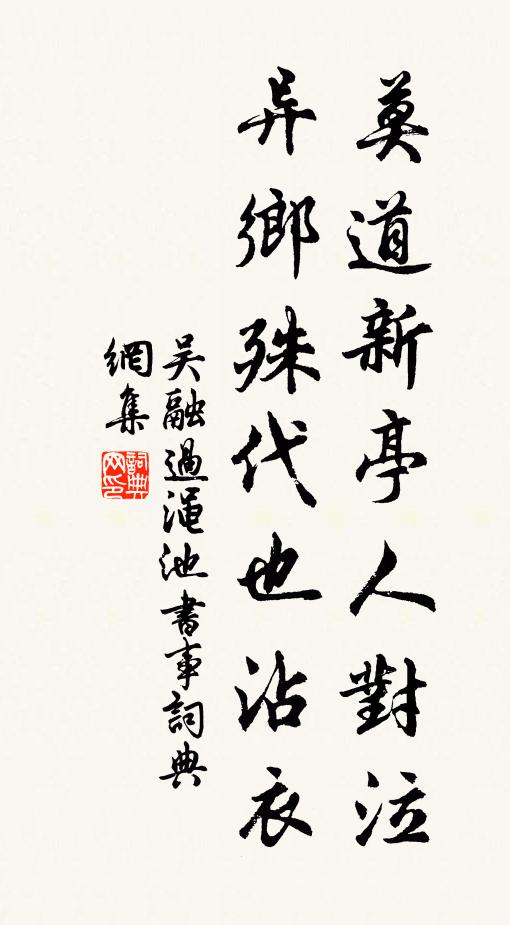 莫道新亭人對泣
异鄉殊代也沾衣
吴融過渑池書事詞典
網集
詞典
网印